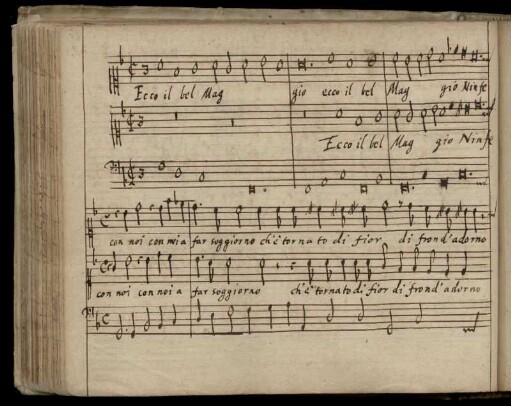 Ecco il bel Mag gio ecco il bel Mag gio Ninfe
Ecco il bel Mag gio Ninfe
con noi con noi a far soggiorno ch'è tornato di fior di frond'adorno
con noi con noi a far soggiorno ch'è tornato di fior di frond'adorno